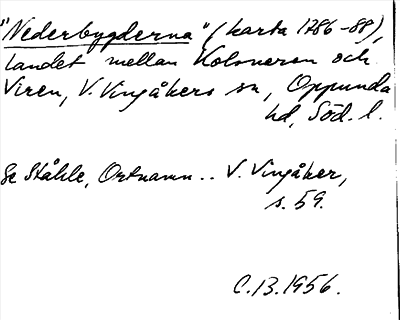 "Nederbygderna" (karta 1786-88),
landet mellan Kolsneren och
Viren, V. Vingåkers sn, Oppunda
hd, Söd. l.
Se Ståhle, Ortnamn .. V. Vingåker,
s. 59.
C.13.1956.